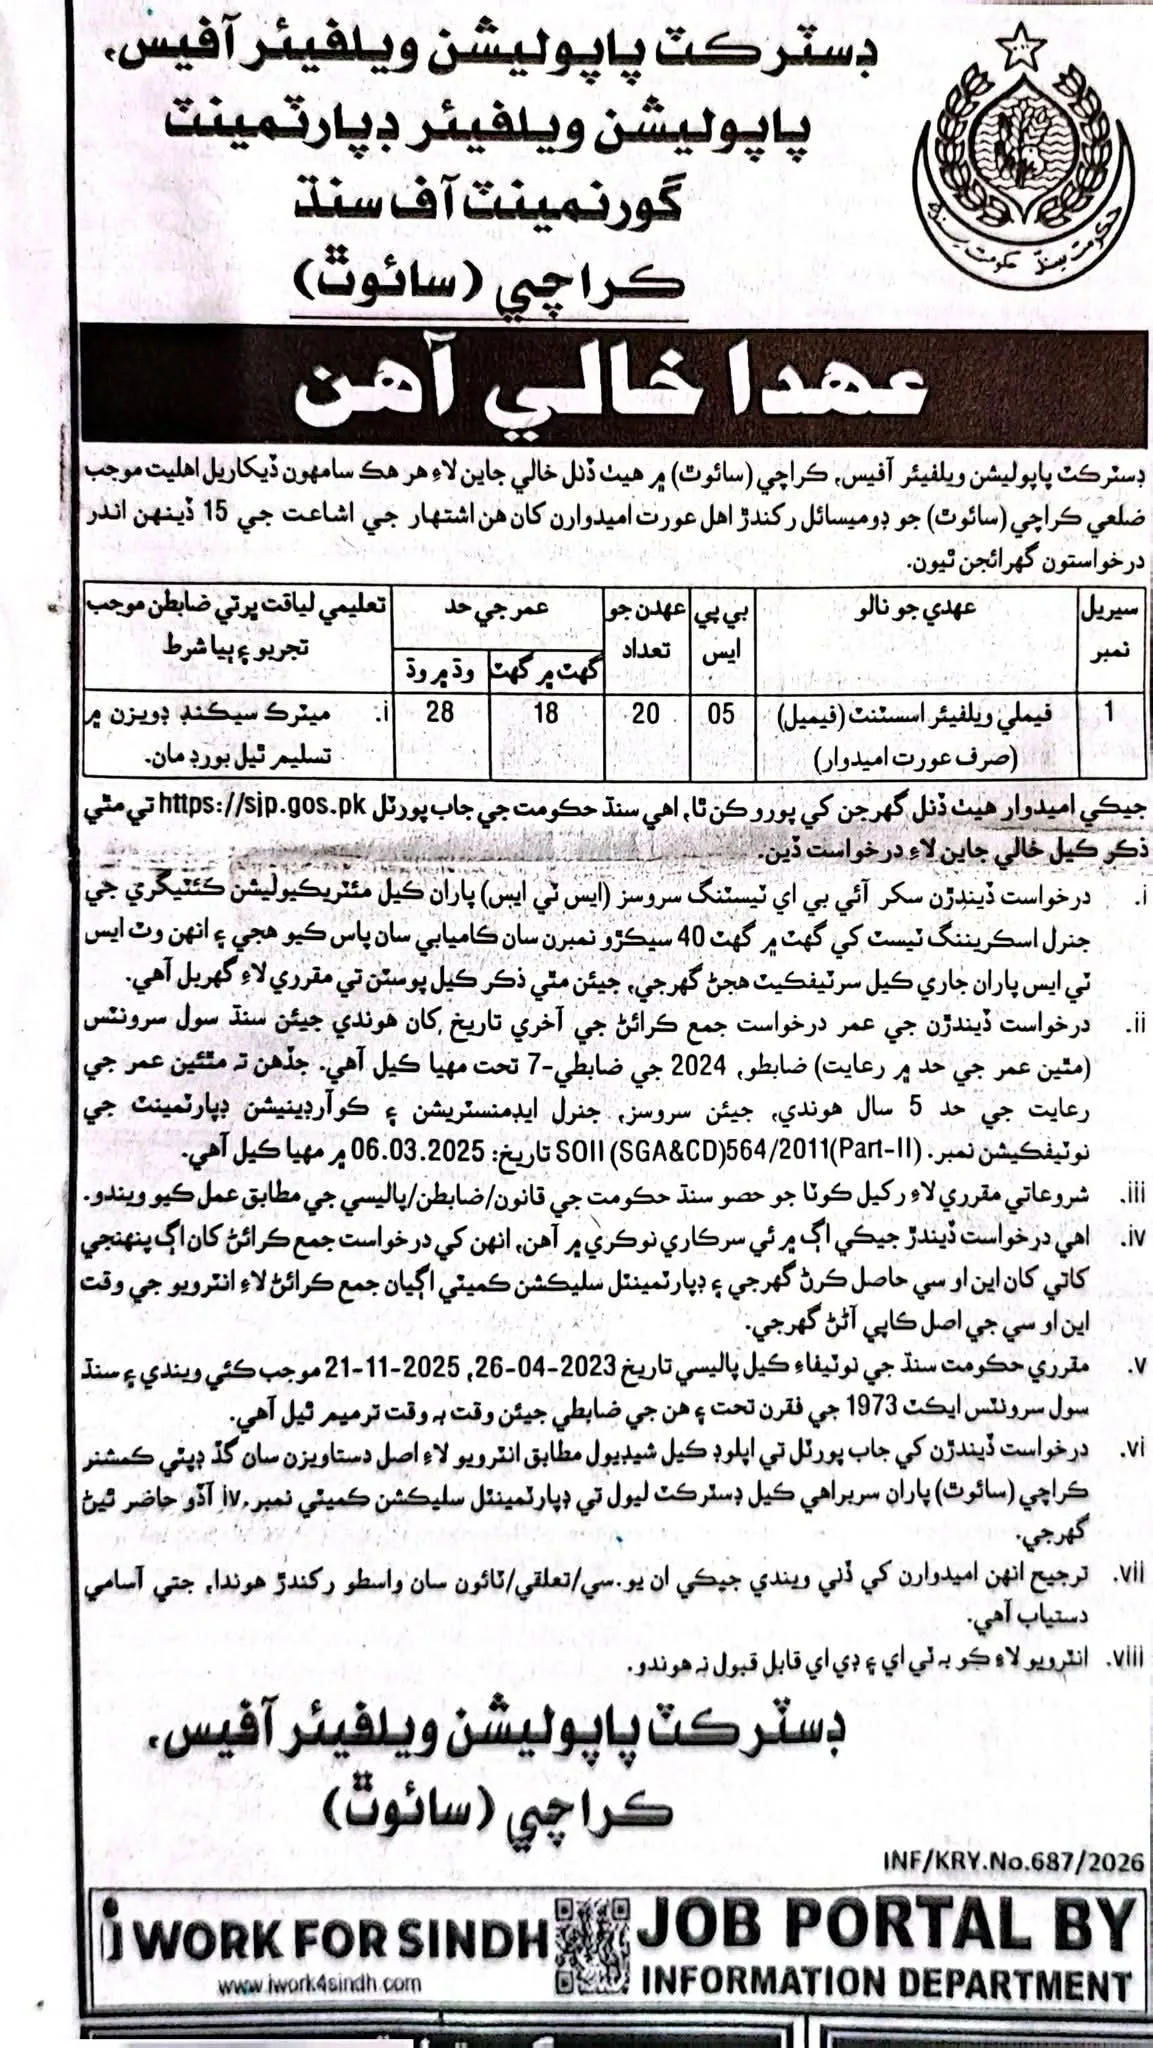 ڊسٽرڪٽ پاپوليشن ويلفيئر آفيس،
پاپوليشن ويلفيئر ڊپارٽمينٽ
گورنمينٽ آف سنڌ
ڪراچي (سائوٿ)
حڪومت سنڌ
عهدا خالي آهن
ڊسٽرڪٽ پاپوليشن ويلفيئر آفيس، ڪراچي (سائوٿ) ۾ هيٺ ڏنل خالي جاين لاءِ هر هڪ سامهون ڏيکاريل اهليت موجب
ضلعي ڪراچي (سائوٿ) جو ڊوميسائل رکندڙ اهل عورت اميدوارن کان هن اشتهار جي اشاعت جي 15 ڏينهن اندر
درخواستون گهرائجن ٿيون.
سيريل نمبر
عهدي جو نالو
بي پي ايس
عهدن جو تعداد
عمر جي حد
گهٽ ۾ گهٽ
وڌ ۾ وڌ
تعليمي لياقت ڀرتي ضابطن موجب
تجربو ۽ ٻيا شرط
1
فيملي ويلفيئر اسسٽنٽ (فيميل)
(صرف عورت اميدوار)
05
20
18
28
i. ميٽرڪ سيڪنڊ ڊويزن ۾
تسليم ٿيل بورڊ مان.
جيڪي اميدوار هيٺ ڏنل گهرجن کي پورو ڪن ٿا، اهي سنڌ حڪومت جي جاب پورٽل https://sjp.gos.pk تي مٿي
ذڪر ڪيل خالي جاين لاءِ درخواست ڏين.
i. درخواست ڏيندڙن سکر آئي بي اي ٽيسٽنگ سروسز (ايس ٽي ايس) پاران ڪيل مئٽريڪيوليشن ڪئٽيگري جي
جنرل اسڪريننگ ٽيسٽ کي گهٽ ۾ گهٽ 40 سيڪڙو نمبرن سان ڪاميابي سان پاس ڪيو هجي ۽ انهن وٽ ايس
ٽي ايس پاران جاري ڪيل سرٽيفڪيٽ هجڻ گهرجي، جيئن مٿي ذڪر ڪيل پوسٽن تي مقرري لاءِ گهربل آهي.
ii. درخواست ڏيندڙن جي عمر درخواست جمع ڪرائڻ جي آخري تاريخ کان هوندي جيئن سنڌ سول سرونٽس
(مٿين عمر جي حد ۾ رعايت) ضابطو، 2024 جي ضابطي-7 تحت مهيا ڪيل آهي. جڏهن ته مٿئين عمر جي
رعايت جي حد 5 سال هوندي، جيئن سروسز، جنرل ايڊمنسٽريشن ۽ ڪوآرڊينيشن ڊپارٽمينٽ جي
نوٽيفڪيشن نمبر. SOII (SGA&CD)564/2011(Part-II) تاريخ: 06.03.2025 ۾ مهيا ڪيل آهي.
iii. شروعاتي مقرري لاءِ رکيل ڪوٽا جو حصو سنڌ حڪومت جي قانون/ضابطن/پاليسي جي مطابق عمل ڪيو ويندو.
iv. اهي درخواست ڏيندڙ جيڪي اڳ ۾ ئي سرڪاري نوڪري ۾ آهن، انهن کي درخواست جمع ڪرائڻ کان اڳ پنهنجي
کاتي کان اين او سي حاصل ڪرڻ گهرجي ۽ ڊپارٽمينٽل سليڪشن ڪميٽي اڳيان جمع ڪرائڻ لاءِ انٽرويو جي وقت
اين او سي جي اصل ڪاپي آڻڻ گهرجي.
v. مقرري حڪومت سنڌ جي نوٽيفاءِ ڪيل پاليسي تاريخ 26-04-2023، 21-11-2025 موجب ڪئي ويندي ۽ سنڌ
سول سرونٽس ايڪٽ 1973 جي فقرن تحت ۽ هن جي ضابطي جيئن وقت به وقت ترميم ٿيل آهي.
vi. درخواست ڏيندڙن کي جاب پورٽل تي اپلوڊ ڪيل شيڊيول مطابق انٽرويو لاءِ اصل دستاويزن سان گڏ ڊپٽي ڪمشنر
ڪراچي (سائوٿ) پاران سربراهي ڪيل ڊسٽرڪٽ ليول تي ڊپارٽمينٽل سليڪشن ڪميٽي نمبر.iv آڏو حاضر ٿيڻ
گهرجي.
vii. ترجيح انهن اميدوارن کي ڏني ويندي جيڪي ان يو.سي/تعلقي/ٽائون سان واسطو رکندڙ هوندا، جتي آسامي
دستياب آهي.
viii. انٽرويو لاءِ ڪو به ٽي اي ۽ ڊي اي قابل قبول نه هوندو.
ڊسٽرڪٽ پاپوليشن ويلفيئر آفيس،
ڪراچي (سائوٿ)
INF/KRY.No.687/2026
i WORK FOR SINDH
www.iwork4sindh.com
JOB PORTAL BY
INFORMATION DEPARTMENT